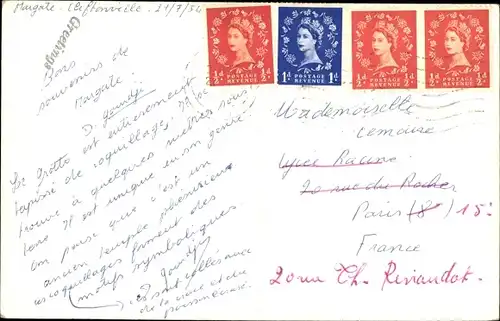 Margate. Cliftonville. 21/7/54
Greetings
Bons
souvenirs de
Margate.
La grotte est entièrement
tapissée de coquillages. Elle se
trouve à quelques mètres sous
terre. Il est unique en son genre!
On pense que c'est un
ancien temple phénicien
les coquillages forment des
motifs symboliques
et sont collés avec
de la craie et du
½d POSTAGE REVENUE ½d
1d POSTAGE REVENUE 1d
½d POSTAGE REVENUE ½d
½d POSTAGE REVENUE ½d
Mademoiselle
Lemoine
Lycée Racine
20 rue du Rocher
Paris (8) 15e
France
20 rue Ch.